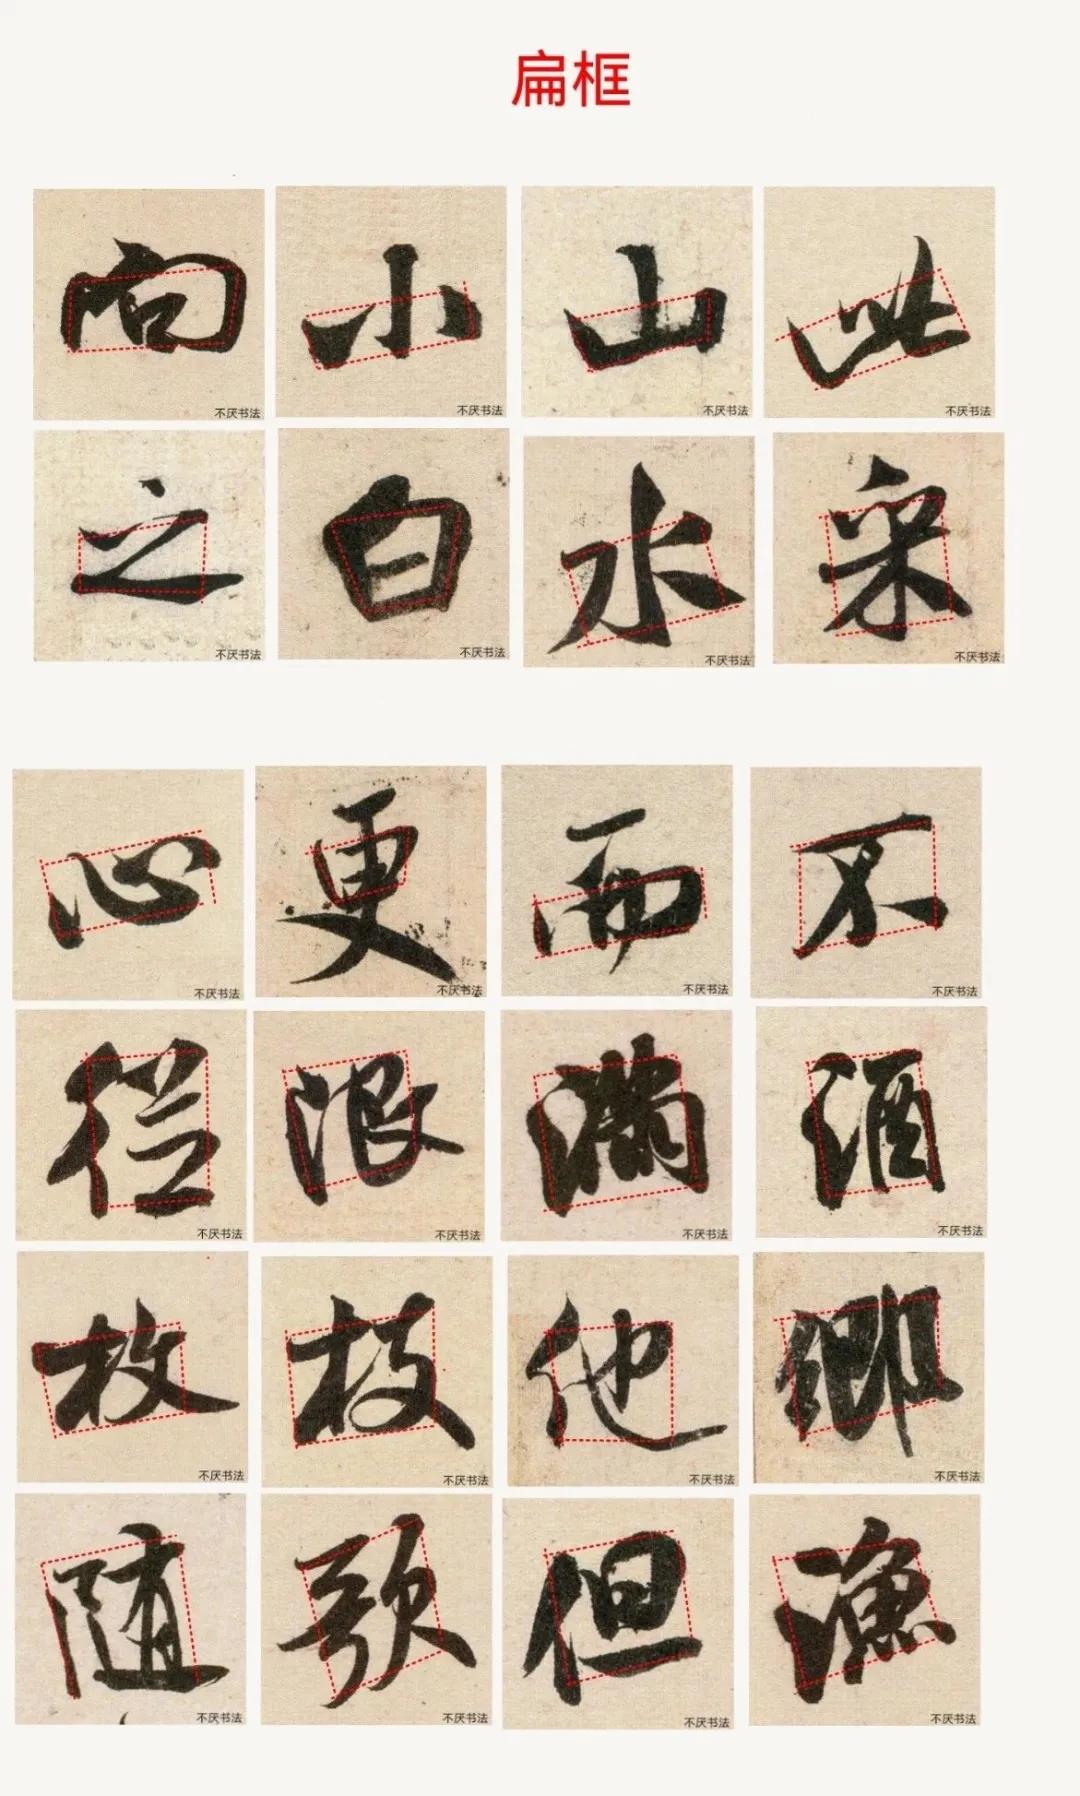 扁框
向 小 山 此
不厌书法 不厌书法 不厌书法 不厌书法
之 白 水 采
不厌书法 不厌书法 不厌书法 不厌书法
心 更 而 不
不厌书法 不厌书法 不厌书法 不厌书法
從 浪 滿 酒
不厌书法 不厌书法 不厌书法 不厌书法
枚 枝 他 卿
不厌书法 不厌书法 不厌书法 不厌书法
随 歌 但 漁
不厌书法 不厌书法 不厌书法 不厌书法